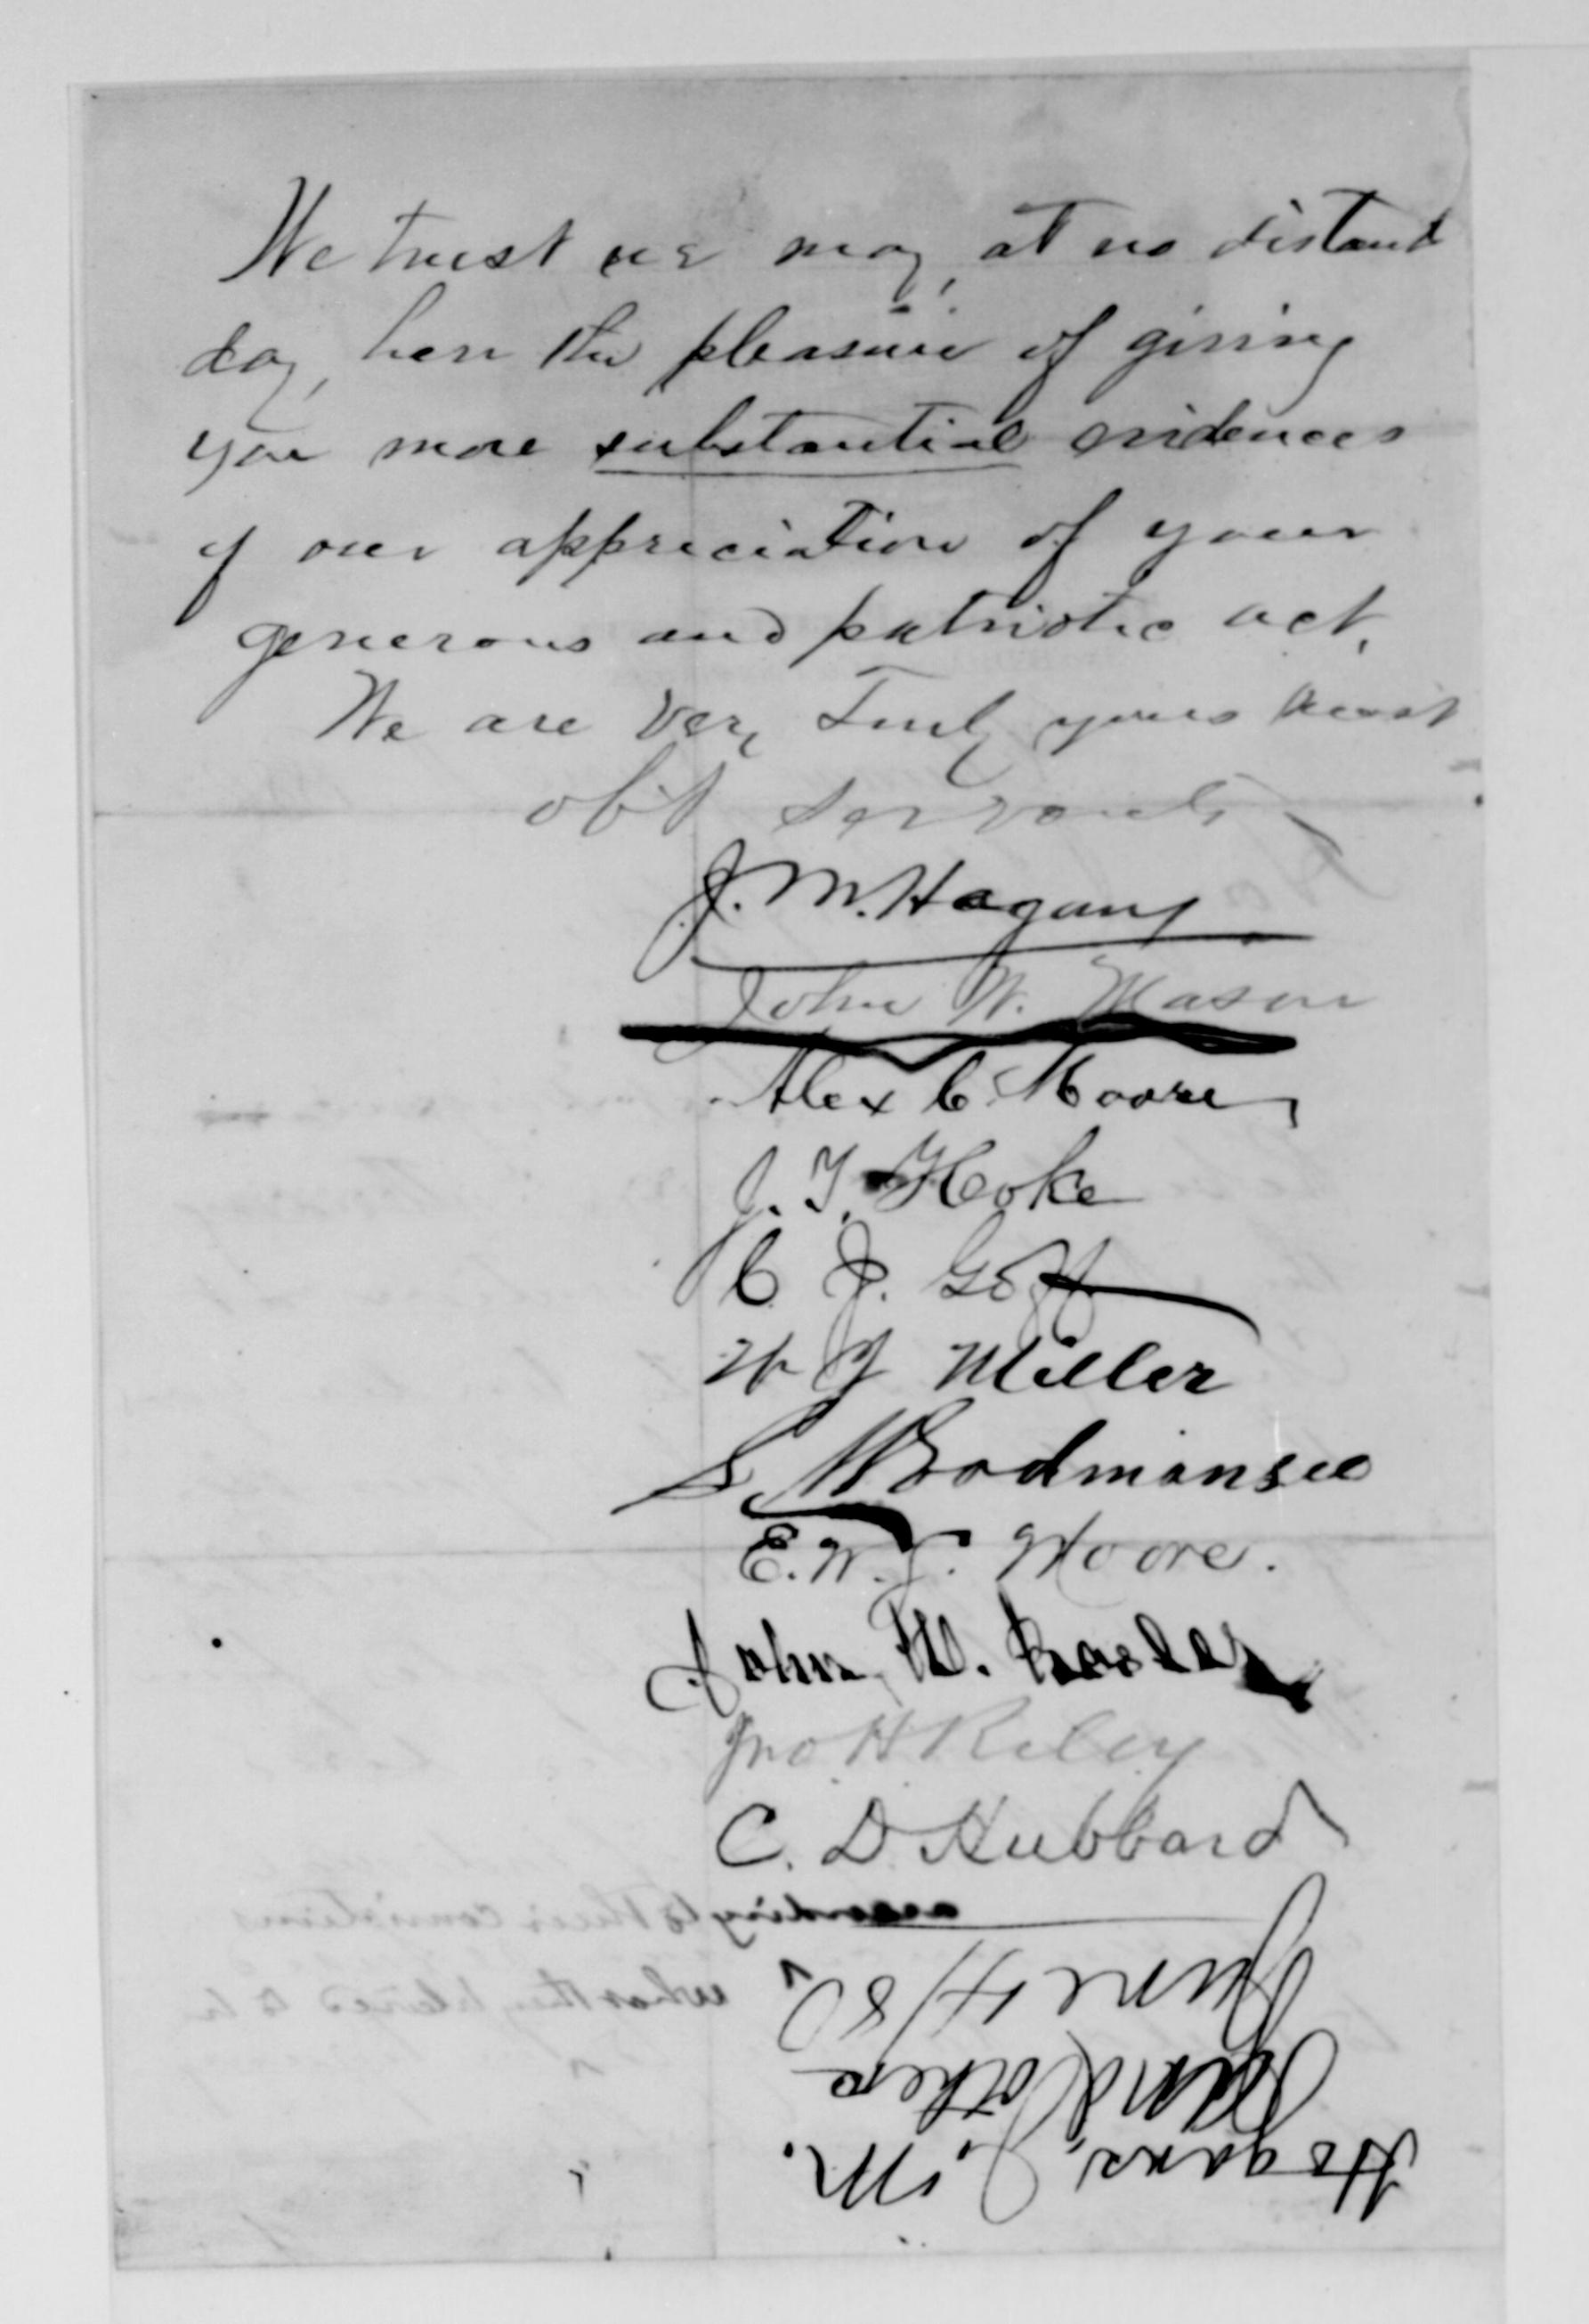 We trust we may, at no distant
day, have the pleasure of giving
you more substantial evidences
of our appreciation of your
generous and patriotic act.
We are very Truly yours most
ob't servants
J. M. Hagans
John W. Mason
Alex C. Moore
J. T. Hoke
C. J. Goff
Miller
S. Woodmansee
E. W. S. Moore.
John W.
Jno H Riley
C. D Hubbard
Hagans, J. M.
and others
June 4/80
according to their convictions
what they believed to be